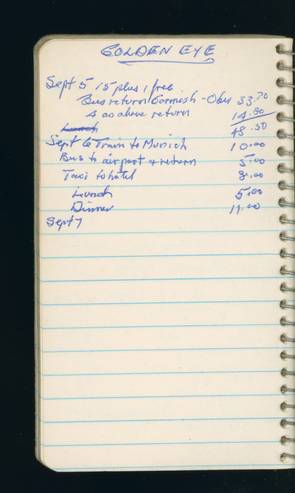 GOLDEN EYE
Sept 5 15 plus 1 free
Bus return Garmesh - Ober 33.70
4 as above return 14.80
Lunch 48.50
Sept 6 Train to Munich 10.00
Bus to airport & return 5.00
Taxi to hotel 8.00
Lunch 5.00
Dinner 11.00
Sept 7